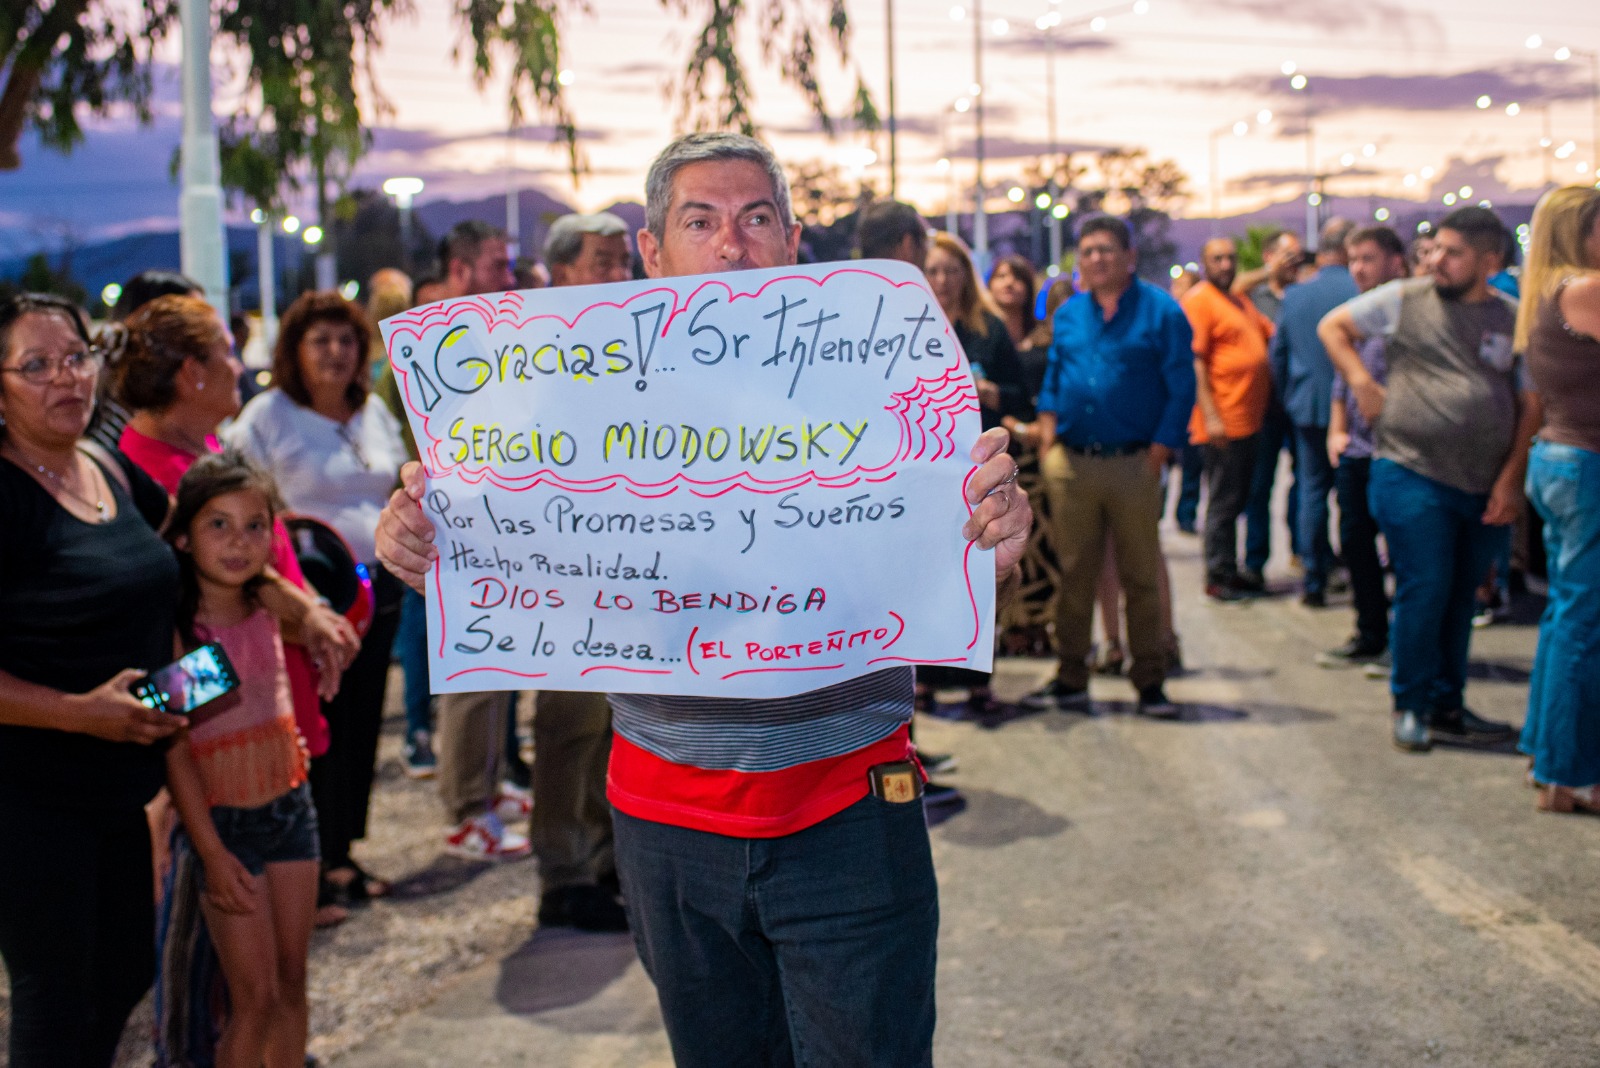 ¡Gracias!... Sr Intendente
SERGIO MIODOWSKY
Por las Promesas y Sueños
Hecho Realidad.
DIOS LO BENDIGA
Se lo desea... (EL PORTEÑITO)